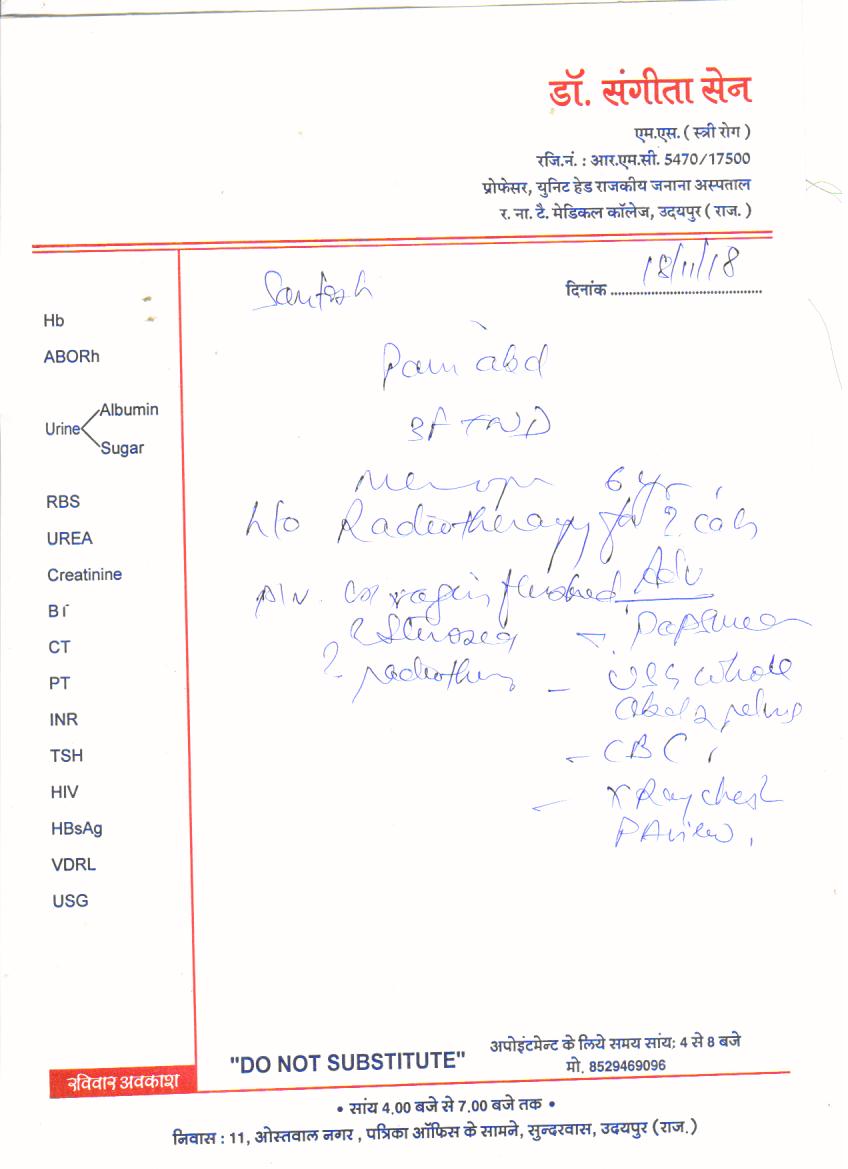 डॉ. संगीता सेन
एम.एस. ( स्त्री रोग )
रजि.नं. : आर.एम.सी. 5470/17500
प्रोफेसर, युनिट हेड राजकीय जनाना अस्पताल
र. ना. टै. मेडिकल कॉलेज, उदयपुर ( राज. )
दिनांक 18/11/18
Santosh
Hb
ABORh
Urine
Albumin
Sugar
RBS
UREA
Creatinine
BT
CT
PT
INR
TSH
HIV
HBsAg
VDRL
USG
Pain abd
3 FTND
6 yr
h/o Radiotherapy for ?
P/V. vagina flushed
?
? 
Adv
- Papsmear
- USG whole
abd & pelvis
- CBC
- X Ray chest
PA view
"DO NOT SUBSTITUTE"
अपोइंटमेन्ट के लिये समय सांय: 4 से 8 बजे
मो. 8529469096
रविवार अवकाश
• सांय 4.00 बजे से 7.00 बजे तक •
निवास : 11, ओस्तवाल नगर , पत्रिका ऑफिस के सामने, सुन्दरवास, उदयपुर (राज.)